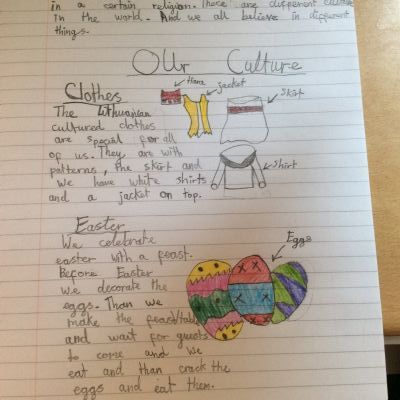 in a certain religion. There are different cultures
in the world. And we all believe in different
things.
OUr Culture
Clothes
jacket
skirt
shirt
The lithuanian
cultured clothes
are special for all
of us. They are with
patterns, the skirt and
We have white shirts
and a jacket on top.
Easter
Eggs
We celebrate
easter with a feast.
Before Easter
we decorate the
eggs. Than we
make the feast/table
and wait for guests
to come and we
eat and than crack the
eggs and eat them.